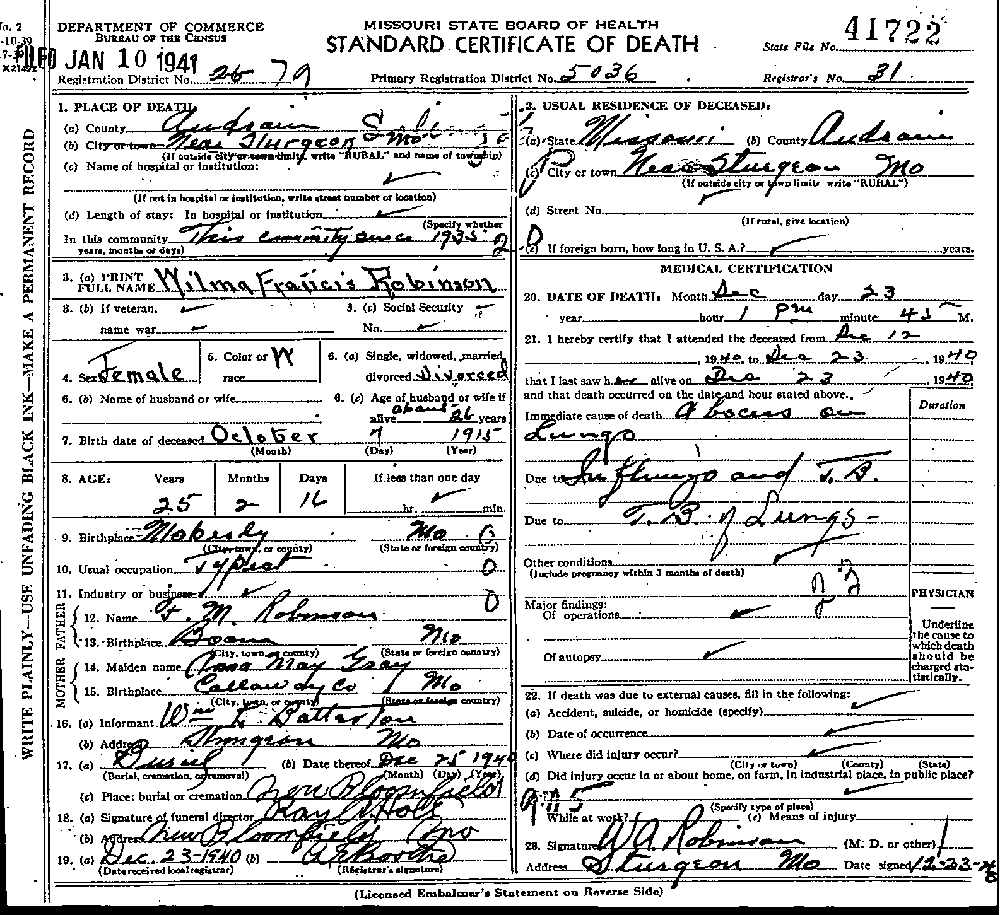 DEPARTMENT OF COMMERCE
BUREAU OF THE CENSUS
MISSOURI STATE BOARD OF HEALTH
STANDARD CERTIFICATE OF DEATH
State File No. 41722
FILED JAN 10 1941
Registration District No. 26 79
Primary Registration District No. 5036
Registrar's No. 31
WRITE PLAINLY—USE UNFADING BLACK INK—MAKE A PERMANENT RECORD
1. PLACE OF DEATH:
(a) County Audrain
(b) City or town Near Sturgeon Mo
(If outside city or town limits, write "RURAL" and name of township)
(c) Name of hospital or institution:
(If not in hospital or institution, write street number or location)
(d) Length of stay: In hospital or institution
(Specify whether
In this community This community since 1935
years, months or days)
3. (a) PRINT FULL NAME Wilma Francis Robinson
3. (b) If veteran, name war
3. (c) Social Security No.
4. Sex Female
5. Color or race W
6. (a) Single, widowed, married, divorced Divorced
6. (b) Name of husband or wife
6. (c) Age of husband or wife if alive about 26 years
7. Birth date of deceased October 7 1915
(Month) (Day) (Year)
8. AGE: Years Months Days If less than one day
25 2 16 hr. min.
9. Birthplace Moberly Mo
(City, town, or county) (State or foreign country)
10. Usual occupation Typist
11. Industry or business
FATHER
12. Name F. M. Robinson
13. Birthplace Boone Mo
(City, town, or county) (State or foreign country)
MOTHER
14. Maiden name Anna May Gray
15. Birthplace Callaway Co Mo
(City, town, or county) (State or foreign country)
16. (a) Informant Wm E. Batterton
(b) Address Sturgeon Mo
17. (a) Burial (b) Date thereof Dec 25 1940
(Burial, cremation, or removal) (Month) (Day) (Year)
(c) Place: burial or cremation New Bloomfield
18. (a) Signature of funeral director Ray A. Holt
(b) Address New Bloomfield Mo
19. (a) Dec. 23-1940 (b)
(Date received local registrar) (Registrar's signature)
2. USUAL RESIDENCE OF DECEASED:
(a) State Missouri (b) County Audrain
(c) City or town Near Sturgeon Mo
(If outside city or town limits write "RURAL")
(d) Street No.
(If rural, give location)
(e) If foreign born, how long in U. S. A.? years.
MEDICAL CERTIFICATION
20. DATE OF DEATH: Month Dec day 23
year hour 1 PM minute 45 M.
21. I hereby certify that I attended the deceased from Dec 12
, 1940 to Dec 23, 1940
that I last saw her alive on Dec 23 1940
and that death occurred on the date and hour stated above.
Duration
Immediate cause of death Abscess on
Lungs
Due to and T.B.
Due to T.B. of Lungs
Other conditions
(Include pregnancy within 3 months of death)
Major findings:
Of operations
Of autopsy
PHYSICIAN
Underline
the cause to
which death
should be
charged sta-
tistically.
22. If death was due to external causes, fill in the following:
(a) Accident, suicide, or homicide (specify)
(b) Date of occurrence
(c) Where did injury occur?
(City or town) (County) (State)
(d) Did injury occur in or about home, on farm, in industrial place, in public place?
(Specify type of place)
While at work? (e) Means of injury
23. Signature W A Robinson (M. D. or other)
Address Sturgeon Mo Date signed 12-23-40
(Licensed Embalmer's Statement on Reverse Side)